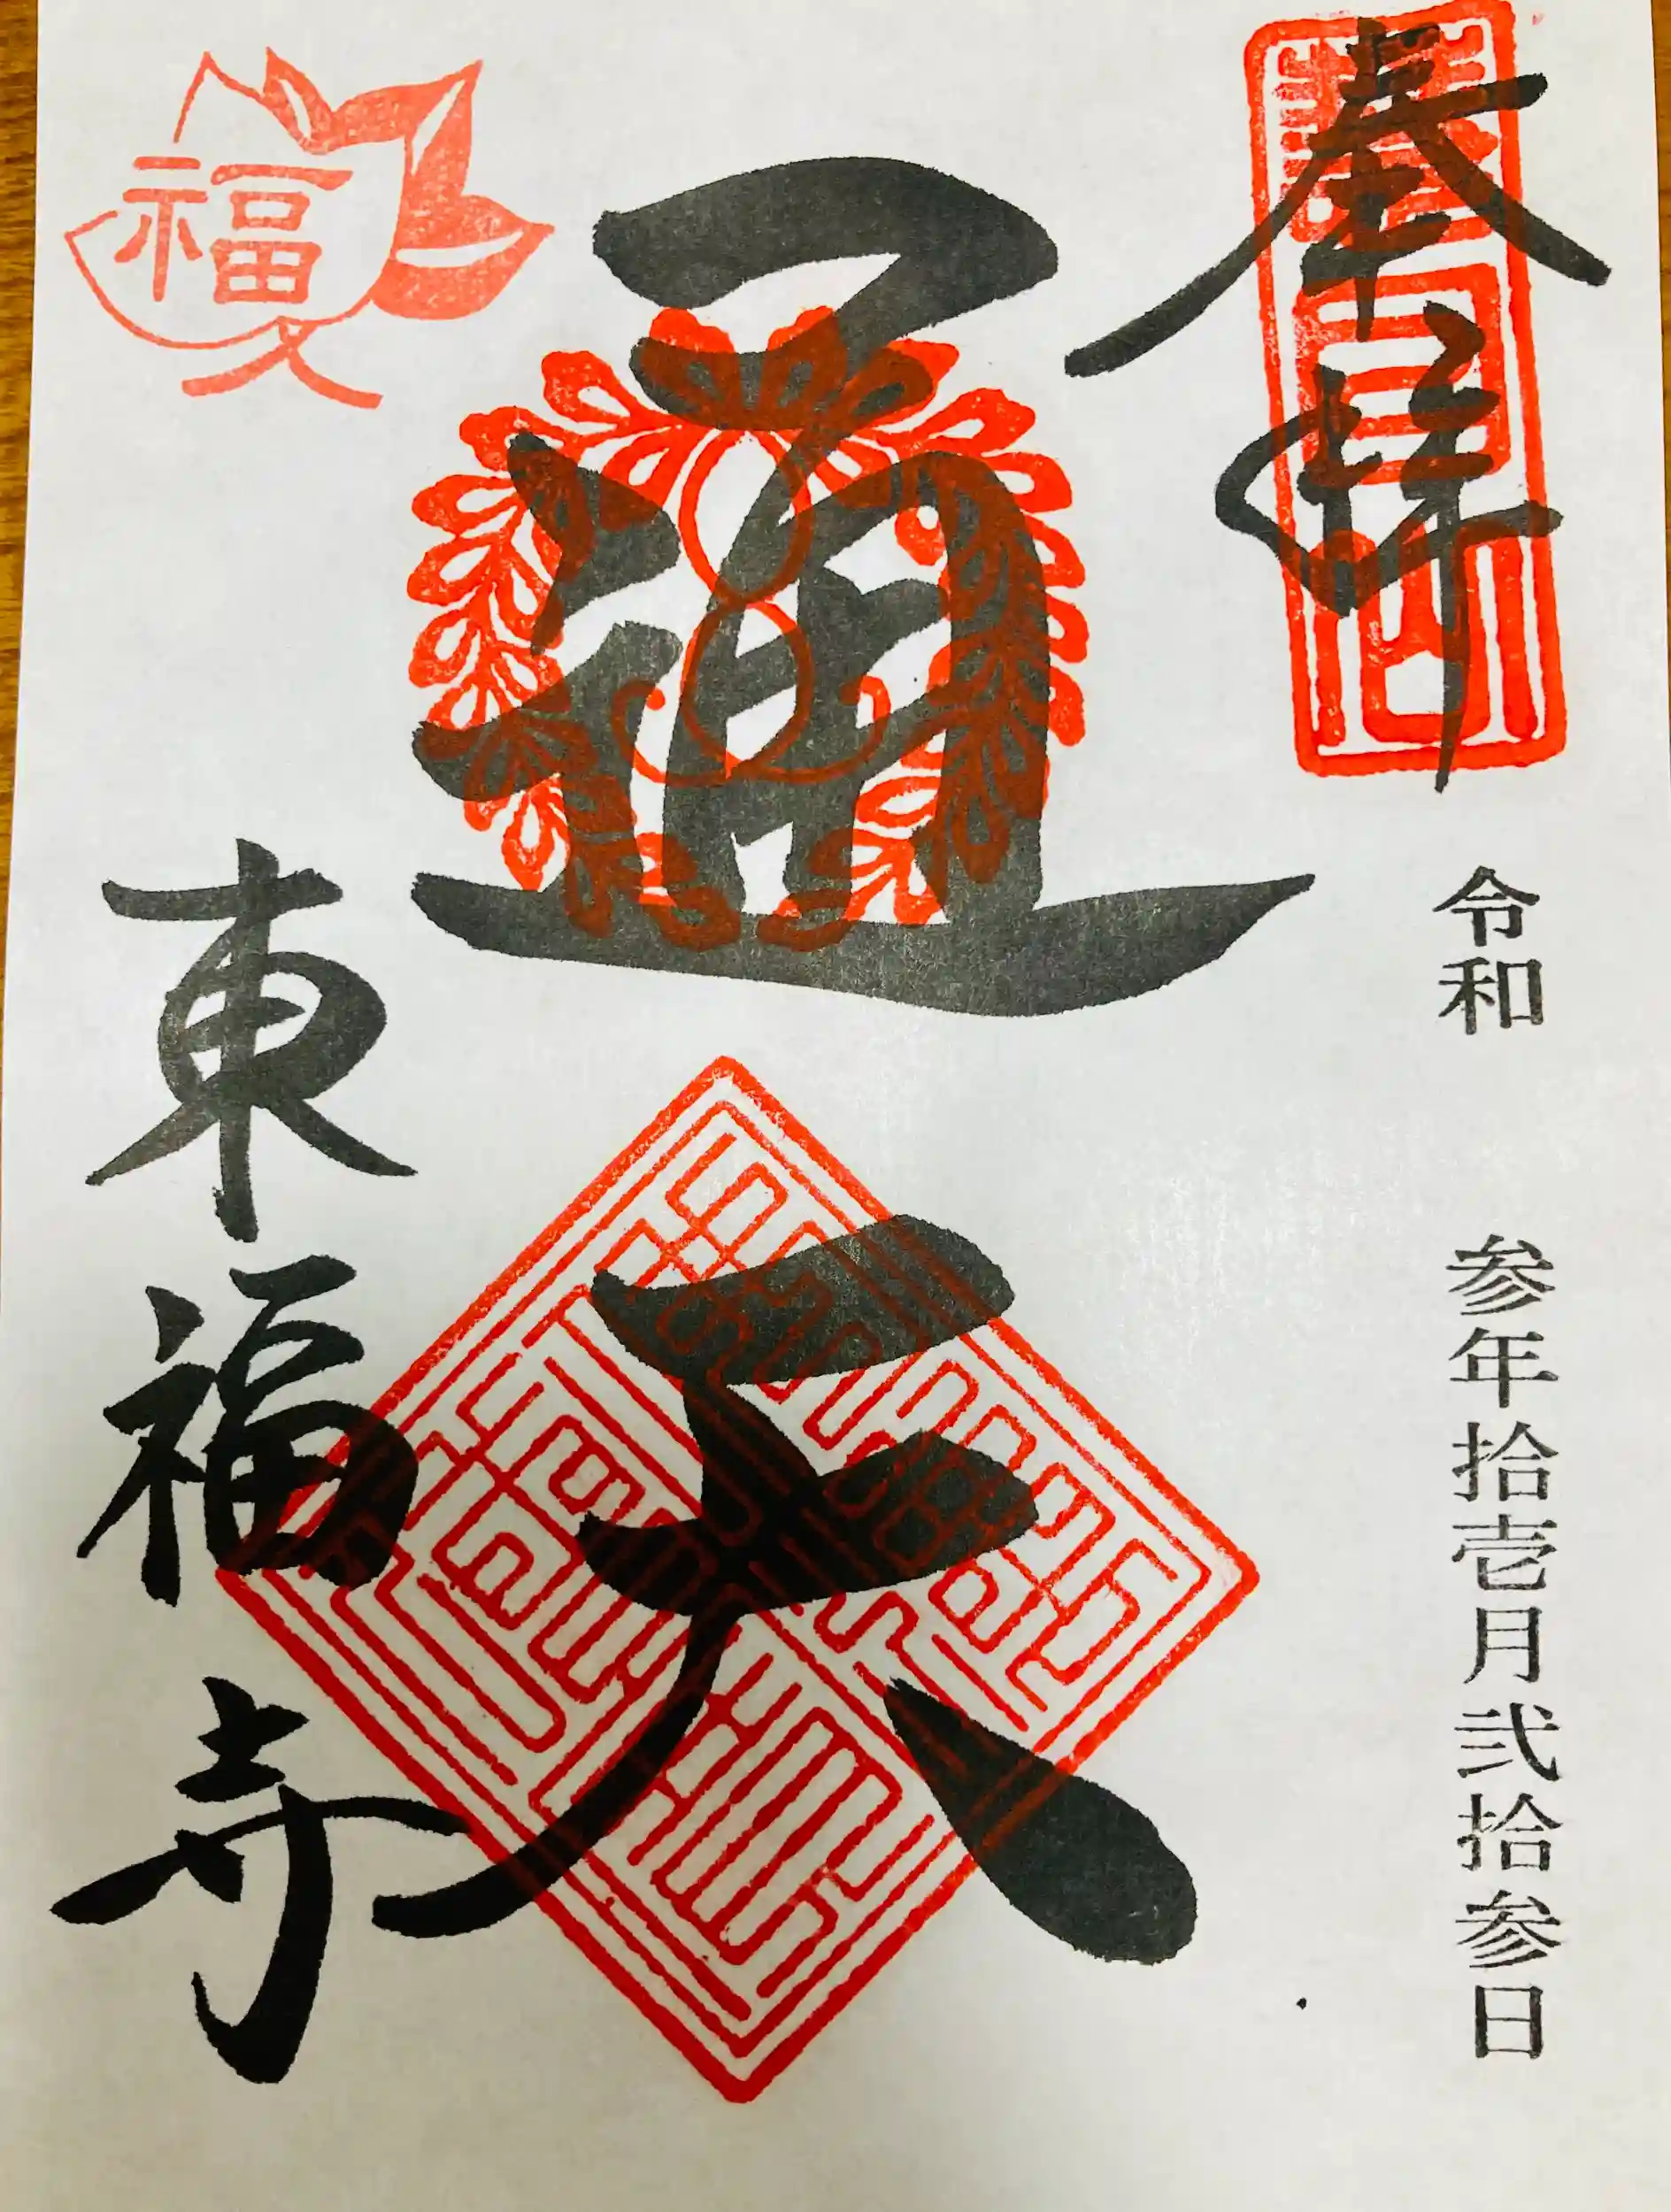 奉拝
令和 参年拾壱月弐拾参日
通天
東福寺
福